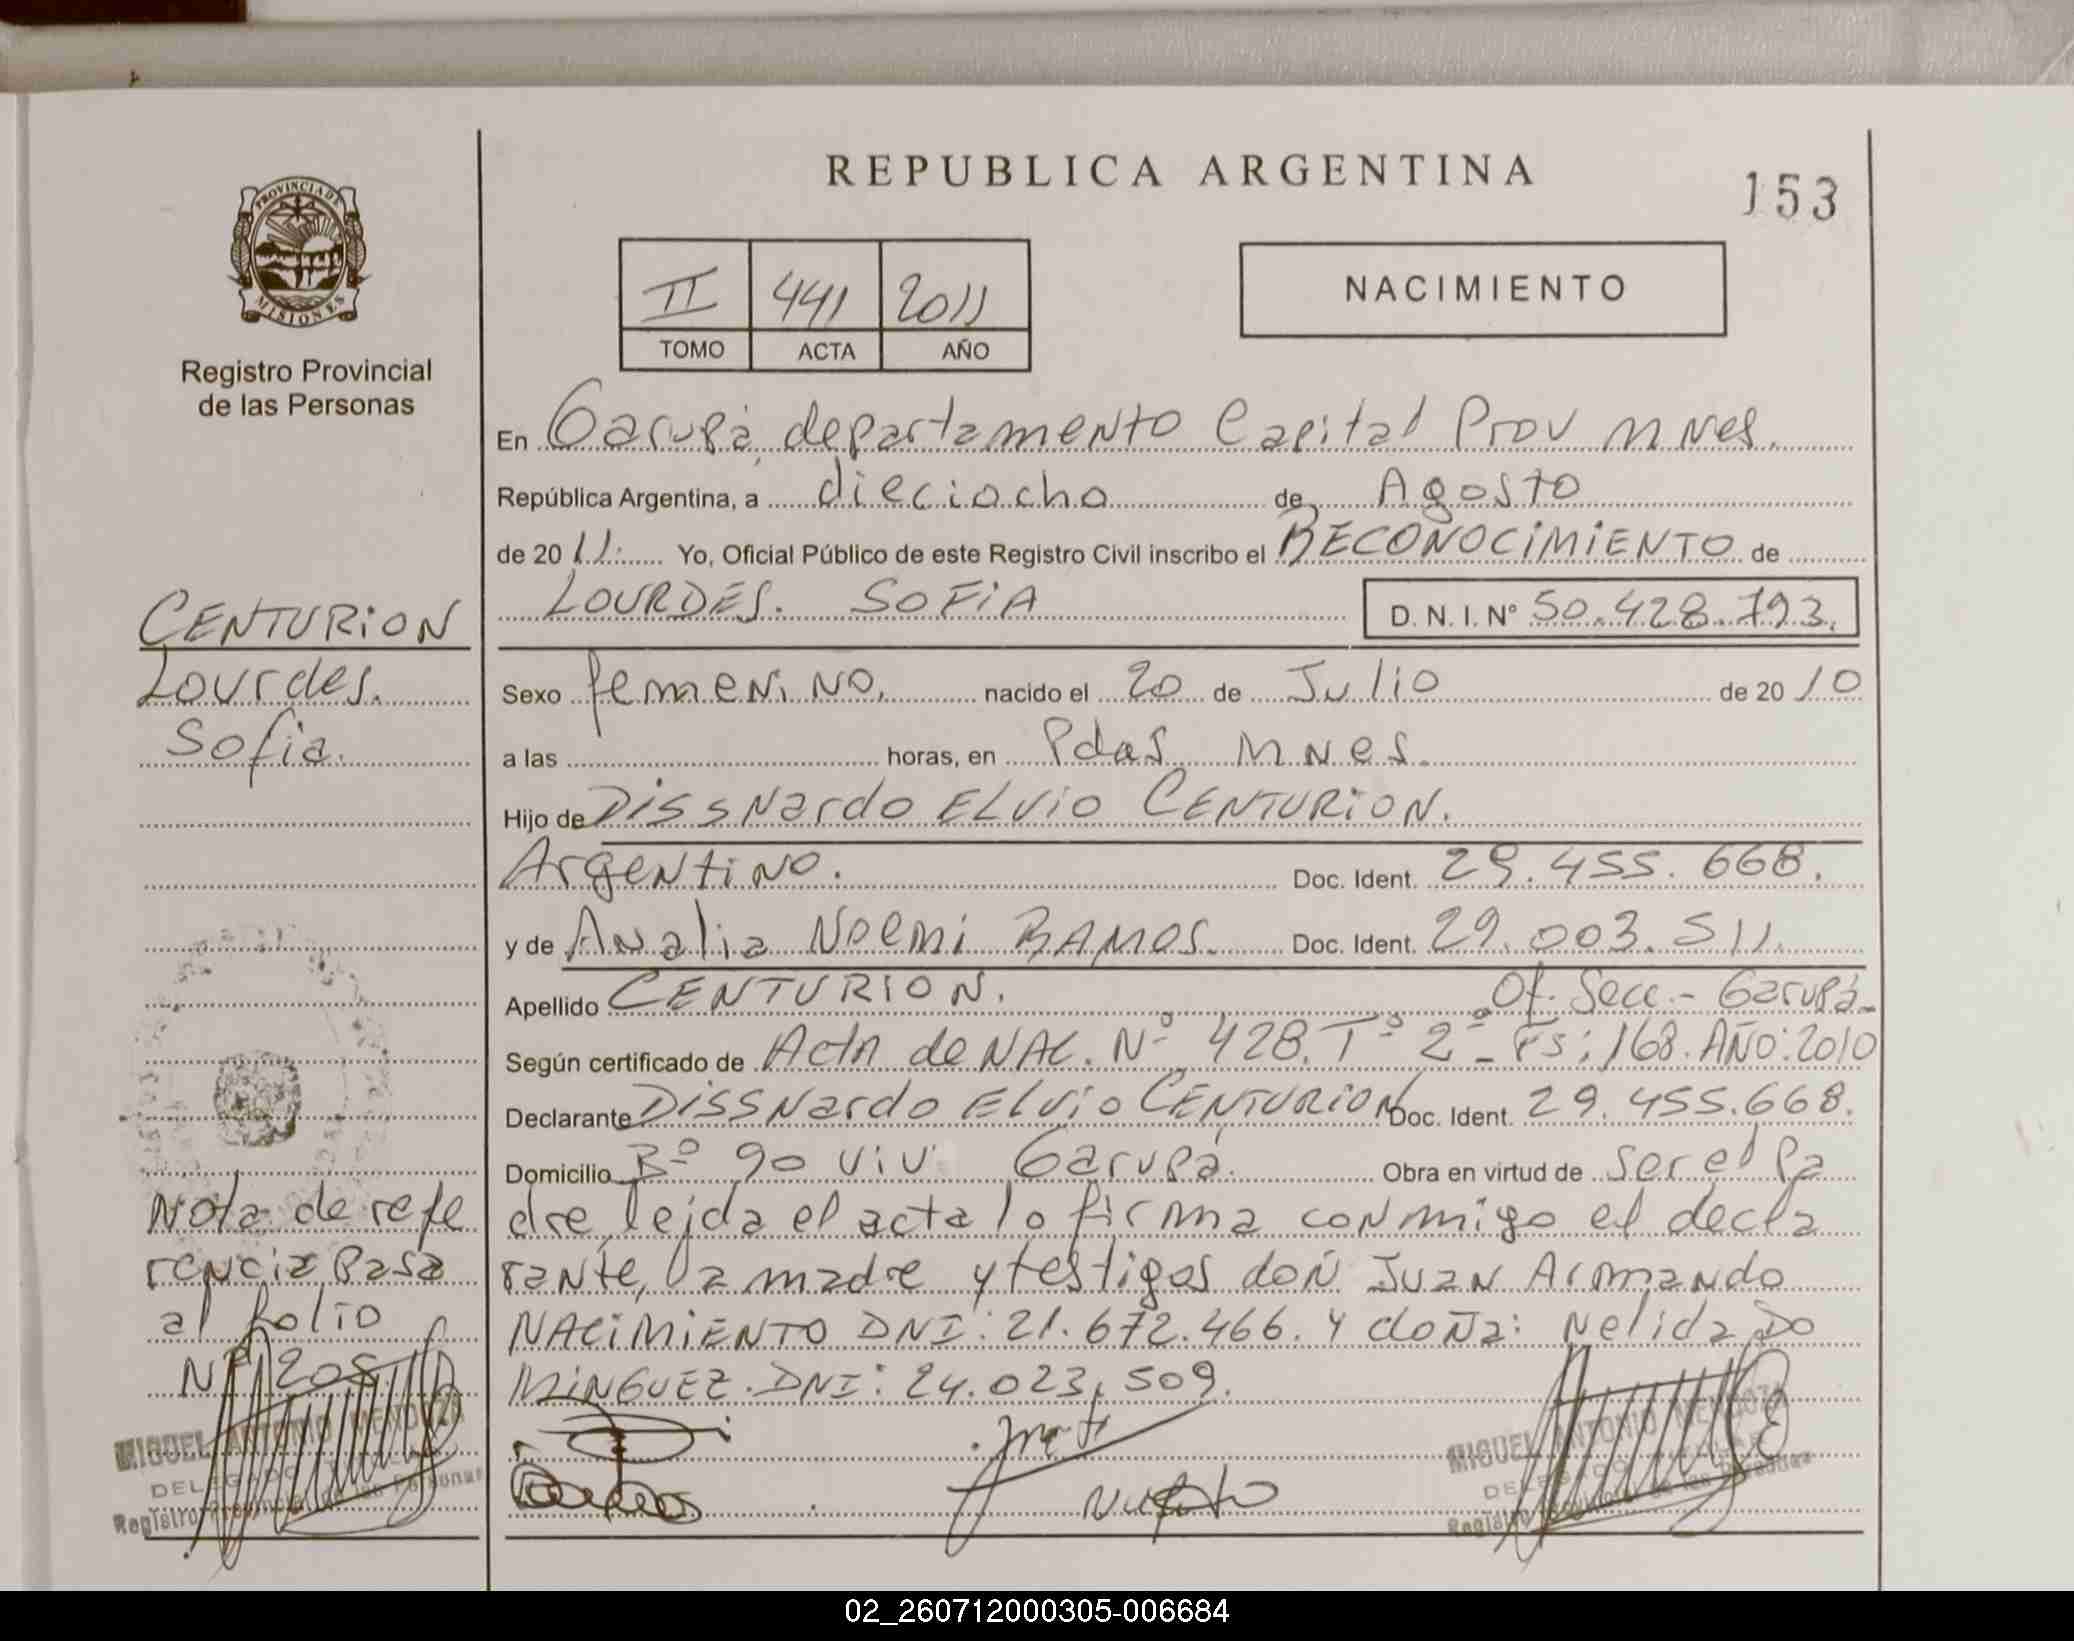 REPUBLICA ARGENTINA
153
PROVINCIA DE
MISIONES
Registro Provincial
de las Personas
II 441 2011
TOMO ACTA AÑO
NACIMIENTO
En Garupá, departamento Capital Prov Mnes.
República Argentina, a dieciocho de Agosto
de 2011. Yo, Oficial Público de este Registro Civil inscribo el RECONOCIMIENTO de
LOURDES. SOFIA D.N.I.Nº 50.428.793.
CENTURION
Lourdes.
Sofia.
Sexo femenino. nacido el 20 de Julio de 2010
a las horas, en Pdas Mnes.
Hijo de DissNardo ELVio CENTURION.
Argentino. Doc. Ident. 29.455.668.
y de Analia Noemi RAMOS. Doc. Ident. 29.003.511.
Apellido CENTURION. Of. Secc.- Garupá-
Según certificado de Acta de NAC. Nº 428. Tº 2º- Fs: 168. AÑO: 2010
Declarante DissNardo ELVio CENTURION Doc. Ident. 29.455.668.
Domicilio Bº 90 viv. Garupá. Obra en virtud de ser el Pa
dre, leida el acta lo firma conmigo el decla
rante, la madre y testigos don Juan Armando
NACIMIENTO DNI: 21.672.466. y doña: Nelida Do
MINGUEZ. DNI: 24.023.509.
Nota de refe
rencia Pasa
al folio
Nº 205
MIGUEL ANTONIO MENDOZA
DELEGADO TITULAR
Registro Provincial de las Personas
MIGUEL ANTONIO MENDOZA
DELEGADO TITULAR
Registro Provincial de las Personas
02_260712000305-006684